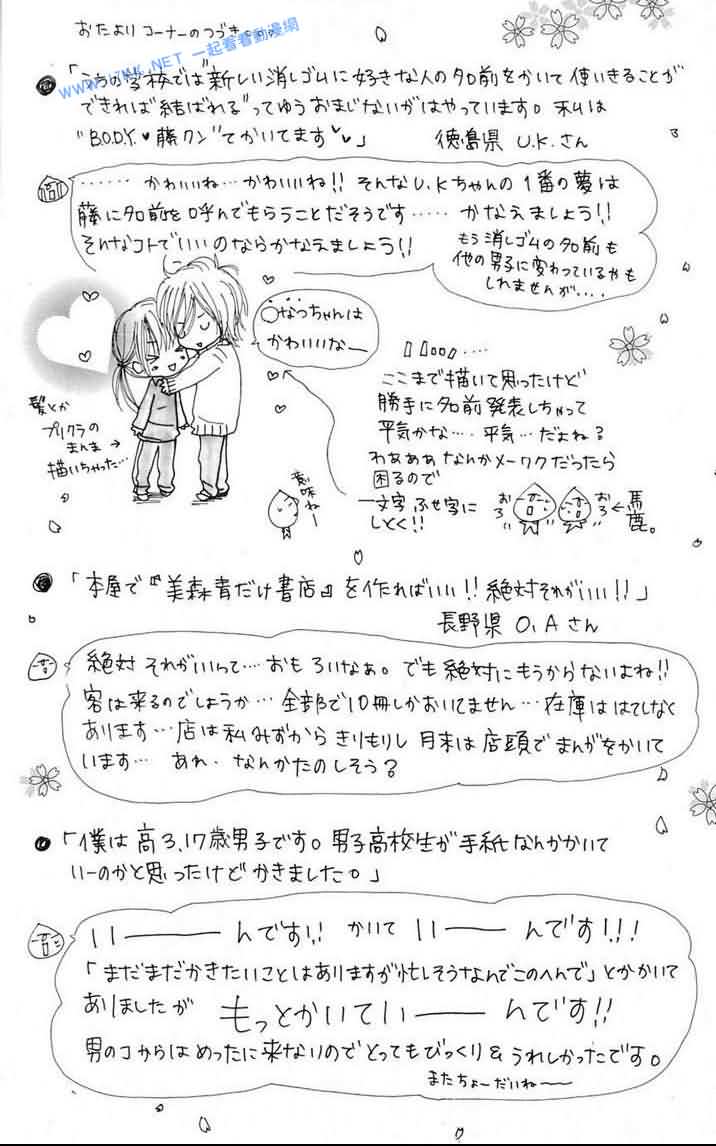 おたよりコーナーのつづき。。。
WWW.17KK.NET 一起看看動漫網
「うちの学校では"新しい消しゴムに好きな人の名前をかいて使いきることが
できれば結ばれる"ってゆうおまじないがはやっています。私は
"B.O.D.Y.♥藤クン"てかいてます♥♥」 徳島県 U.Kさん
‥‥‥ かわいいね…かわいいね!! そんなU.Kちゃんの1番の夢は
藤に名前を呼んでもらうことだそうです‥‥‥ かなえましょう!!
そんなコトでいいのならかなえましょう!!
もう消しゴムの名前も
他の男子に変わっているかも
しれませんが‥‥
○なっちゃんは
かわいいなー
髪とか
プリクラの
まんま→
描いちゃった…
ここまで描いて思ったけど
勝手に名前発表しちゃって
平気かな…平気…だよね?
わぁぁぁなんかメーワクだったら
困るので
一文字ふせ字に
しとく!!
意味ねー
おろ
おろ
←馬鹿。
「本屋で『美森青だけ書店』を作ればいい!!絶対それがいい!!」
長野県 O.Aさん
絶対それがいいって…おもろいなぁ。でも絶対にもうからないよね!!
客は来るのでしょうか…全部で10冊しかおいてません…在庫ははてしなく
あります…店は私みずからきりもりし月末は店頭でまんがをかいて
います… あれ・なんかたのしそう?
「僕は高3、17歳男子です。男子高校生が手紙なんかかいて
いーのかと思ったけどかきました。」
いーーーんです!! かいていーーーんです!!!
「まだまだかきたいことはありますが忙しそうなんでこのへんで」とかかいて
ありましたが もっとかいていーーーんです!!
男のコからはめったに来ないのでとってもびっくり&うれしかったです。
またちょーだいねーー